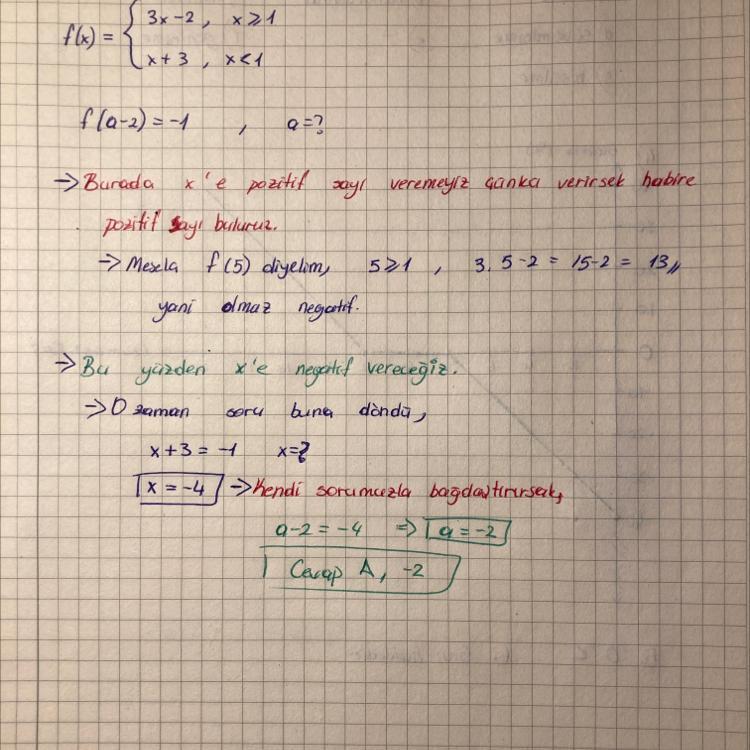 f(x) = { 3x-2 , x⩾1
x+3 , x<1
f(a-2) = -1 , a=?
→ Burada x'e pozitif sayı veremeyiz çünkü verirsek habire
pozitif sayı buluruz.
→ Mesela f(5) diyelim, 5⩾1 , 3.5-2 = 15-2 = 13,,
yani olmaz negatif.
→ Bu yüzden x'e negatif vereceğiz.
→ O zaman soru buna döndü,
x+3 = -1 x=?
x = -4 → Kendi sorumuzla bağdaştırırsak,
a-2 = -4 ⇒ a = -2
Cevap A, -2